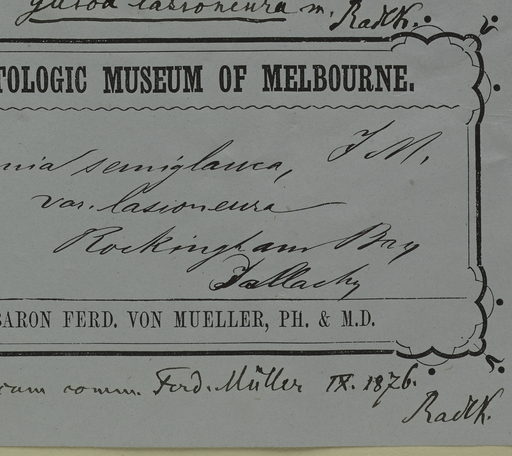 lasioneura m. Radlk.
TOLOGIC MUSEUM OF MELBOURNE.
nia semiglauca, F M.
var. lasioneura
Rockingham Bay
Dallachy
BARON FERD. VON MUELLER, PH. & M.D.
comm. Ferd. Müller IX. 1876.
Radlk.